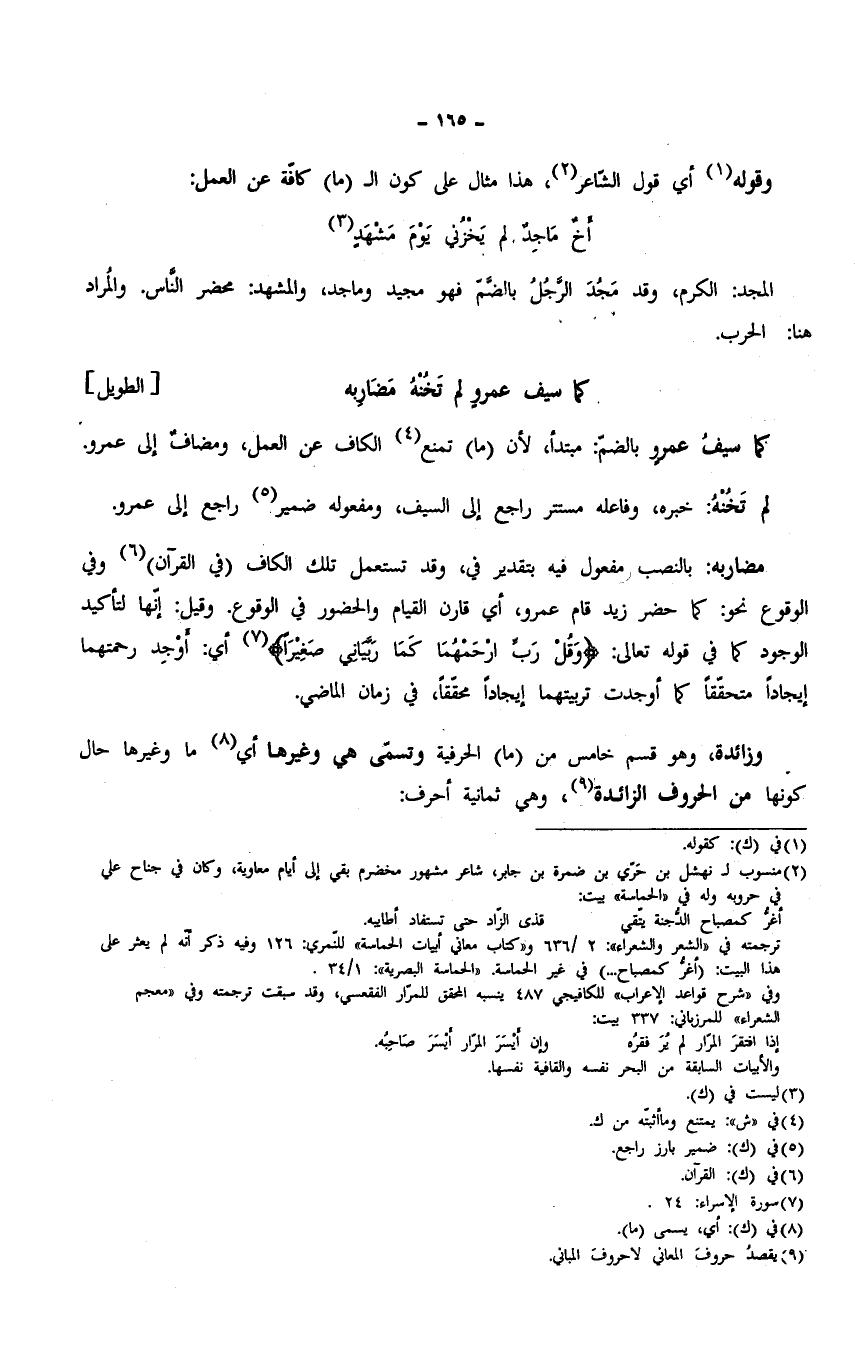 - ١٦٥ -
وقوله(١) أي قول الشّاعر(٢)، هذا مثال على كون الـ (ما) كافّة عن العمل:
أَخٌ مَاجِدٌ لم يَخْزُني يَوْمَ مَشْهَدٍ(٣)
المجد: الكرم، وقد مَجُدَ الرَّجُلُ بالضَّمّ فهو مجيد وماجد، والمشهد: محضر النَّاس. والمُراد
هنا: الحرب.
كما سيف عمروٍ لم تَخُنْهُ مَضَارِبه [الطويل]
كما سيفُ عمروٍ بالضمّ: مبتدأ، لأن (ما) تمنع(٤) الكاف عن العمل، ومضافٌ إلى عمرو.
لم تَخُنْهُ: خبره، وفاعله مستتر راجع إلى السيف، ومفعوله ضمير(٥) راجع إلى عمرو.
مضاربه: بالنصب مفعول فيه بتقدير في، وقد تستعمل تلك الكاف (في القرآن)(٦) وفي
الوقوع نحو: كما حضر زيد قام عمرو، أي قارن القيام والحضور في الوقوع. وقيل: إنّها لتأكيد
الوجود كما في قوله تعالى: ﴿وَقُلْ رَبِّ ارْحَمْهُمَا كَمَا رَبَّيَانِي صَغِيْرَاً﴾(٧) أي: أَوْجِد رحمتهما
إيجاداً متحقّقاً كما أوجدت تربيتهما إيجاداً محقّقاً، في زمان الماضي.
وزائدة، وهو قسم خامس من (ما) الحرفية وتسمّى هي وغيرها أي(٨) ما وغيرها حال
كونها من الحروف الزائدة(٩)، وهي ثمانية أحرف:
(١) في (ك): كقوله.
(٢) منسوب لـ نهشل بن حَرّي بن ضمرة بن جابر، شاعر مشهور مخضرم بقي إلى أيام معاوية، وكان في جناح علي
في حروبه وله في «الحماسة» بيت:
أغرُّ كمصباح الدُّجنة يتّقي قذى الزّاد حتى تستفاد أطايبه.
ترجمته في «الشعر والشعراء»: ٢ /٦٣٦ و«كتاب معاني أبيات الحماسة» للنّمري: ١٢٦ وفيه ذكر أنّه لم يعثر على
هذا البيت: (أغرُّ كمصباح...) في غير الحماسة. «الحماسة البصرية»: ٣٤/١ .
وفي «شرح قواعد الإعراب» للكافيجي ٤٨٧ ينسبه المحقق للمرّار الفقعسي، وقد سبقت ترجمته وفي «معجم
الشعراء» للمرزباني: ٣٣٧ بيت:
إذا افتقرَ المرّار لم يُرَ فقرُه وإن أَيْسَرَ المرّار أيْسَرَ صَاحِبُه.
والأبيات السابقة من البحر نفسه والقافية نفسها.
(٣) ليست في (ك).
(٤) في «ش»: يمتنع وماأثبتّه من ك.
(٥) في (ك): ضمير بارز راجع.
(٦) في (ك): القرآن.
(٧) سورة الإسراء: ٢٤ .
(٨) في (ك): أي، يسمى (ما).
(٩) يقصدُ حروفَ المعاني لاحروفَ المباني.